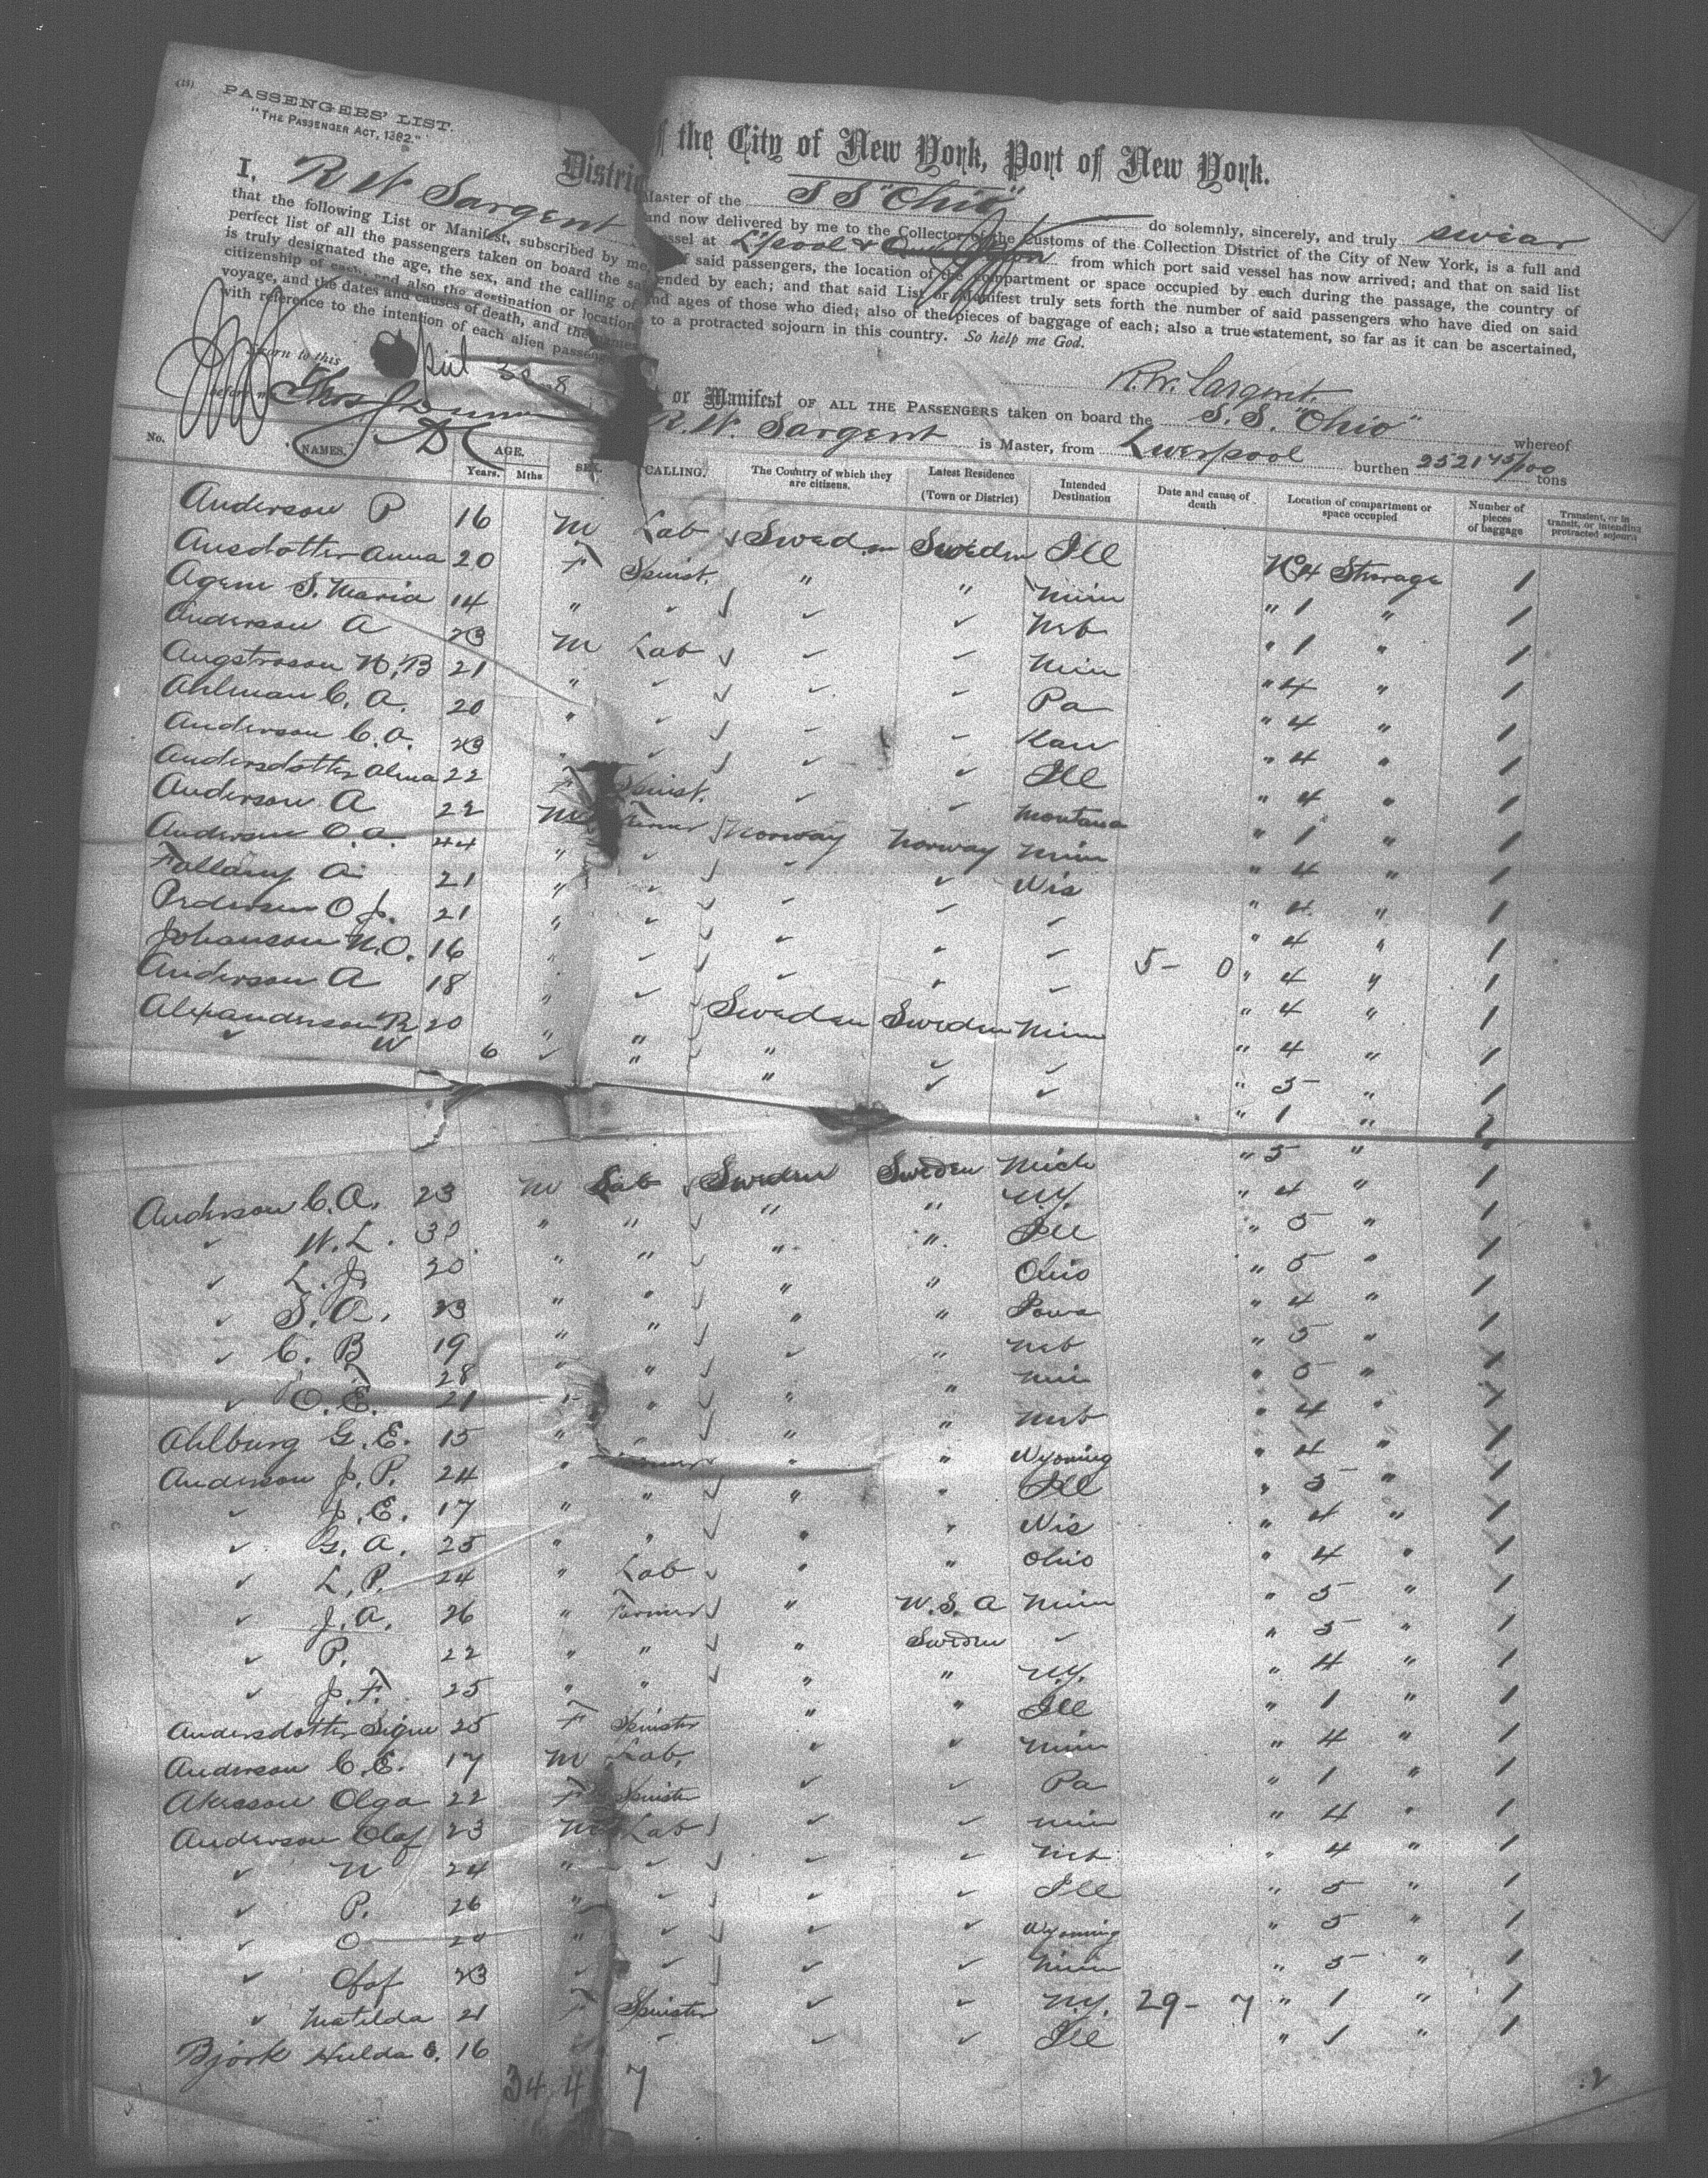 PASSENGERS' LIST.
"THE PASSENGER ACT, 1882."
District of the City of New York, Port of New York.
I, R W Sargent Master of the S S "Ohio" do solemnly, sincerely, and truly swear
that the following List or Manifest, subscribed by me, and now delivered by me to the Collector of the Customs of the Collection District of the City of New York, is a full and
perfect list of all the passengers taken on board the said vessel at L'pool & from which port said vessel has now arrived; and that on said list
is truly designated the age, the sex, and the calling of said passengers, the location of the compartment or space occupied by each during the passage, the country of
citizenship of each, and also the destination or location intended by each; and that said List or Manifest truly sets forth the number of said passengers who have died on said
voyage, and the dates and causes of death, and the names and ages of those who died; also of the pieces of baggage of each; also a true statement, so far as it can be ascertained,
with reference to the intention of each alien passenger to a protracted sojourn in this country. So help me God.
Sworn to this
R. W. Sargent.
before me
or Manifest OF ALL THE PASSENGERS taken on board the S. S. "Ohio" whereof
R. W. Sargent is Master, from Liverpool burthen 2521 45/100 tons
No. NAMES. AGE. Years. Mths SEX. CALLING. The Country of which they are citizens. Latest Residence (Town or District) Intended Destination Date and cause of death Location of compartment or space occupied Number of pieces of baggage Transient, or in transit, or intending protracted sojourn
Anderson P 16 M Lab Sweden Sweden Ill No 4 Steerage 1
Ausdotter Anna 20 F Spinst. " " Minn " 1 " 1
Agern S. Maria 14 " ✓ ✓ ✓ Neb " 1 " 1
Anderson A 23 M Lab ✓ ✓ Minn " 4 " 1
Angstroson N, B 21 " ✓ ✓ ✓ Pa " 4 " 1
Ahlman C. A. 20 " ✓ ✓ ✓ Kan " 4 " 1
Anderson C. O. 23 " ✓ ✓ ✓ Ill " 4 " 1
Andersdotter Alma 22 F Spinst. ✓ ✓ Montana " 1 " 1
Anderson A 22 M Farmer Norway Norway Minn " 4 " 1
Andersen O. A. 44 " ✓ ✓ ✓ Wis " 4 " 1
21 " ✓ ✓ ✓ ✓ " 4 " 1
Pedersen O J. 21 " ✓ ✓ ✓ ✓ " 4 " 1
Johanson N. O. 16 " ✓ ✓ ✓ ✓ 5 - 0 " 4 " 1
Anderson A 18 " " Sweden Sweden Minn " 4 " 1
Alexanderson 20 " " " ✓ ✓ " 5 " 1
✓ W 6 ✓ " " ✓ ✓ " 1 "
Anderson C. A. 23 M Lab Sweden Sweden Mich " 5 " 1
✓ W. L. " " " " N.Y. " 4 " 1
✓ L. J. 20 " " " " Ill " 5 " 1
✓ S. A. 23 " " " " Ohio " 5 " 1
✓ C. B 19 " " " " Iowa " 4 " 1
28 " " ✓ " Neb " 5 " 1
✓ O. E. 21 " " " " Min " 5 " 1
Ahlburg G. E. 15 " " " " Neb " 4 " 1
Anderson J. P. 24 " Farmer " " Wyoming " 4 " 1
✓ J. E. 17 " " " " Ill " 5 " 1
✓ G. A. 25 " " " " Wis " 4 " 1
✓ L. P. 24 " Lab " " Ohio " 4 " 1
✓ J. A. 26 " Farmer " U. S. A Minn " 5 " 1
✓ P. 22 " " " Sweden ✓ " 5 " 1
✓ J. F. 25 " " " " N.Y. " 4 " 1
Andersdotter Signe 25 F Spinster " " Ill " 1 " 1
Anderson C. E. 17 M Lab. " ✓ Minn " 4 " 1
Akesson Olga 22 F Spinster ✓ ✓ Pa " 1 " 1
Anderson Olof 23 M Lab ✓ ✓ Min " 4 " 1
✓ N 24 " ✓ ✓ ✓ Neb " 4 " 1
✓ P. 26 " ✓ ✓ ✓ Ill " 5 " 1
✓ O 24 " ✓ ✓ ✓ Wyoming " 5 " 1
✓ Olof 23 ✓ ✓ ✓ ✓ Minn " 5 " 1
✓ Matilda 21 F Spinster ✓ ✓ N.Y. 29 - 7 " 1 " 1
Bjork Hulda E. 16 ✓ ✓ ✓ Ill " 1 " 1
34 4 7